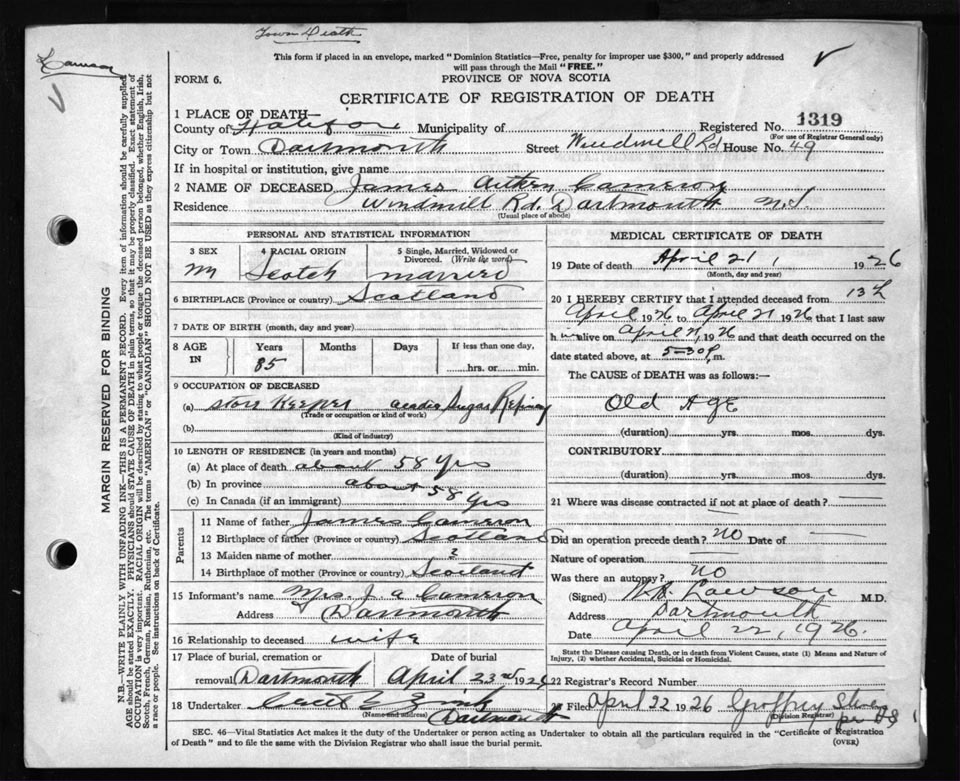 Town Death
Cameron
This form if placed in an envelope, marked "Dominion Statistics—Free, penalty for improper use $300," and properly addressed
will pass through the Mail "FREE."
FORM 6.
PROVINCE OF NOVA SCOTIA
CERTIFICATE OF REGISTRATION OF DEATH
1 PLACE OF DEATH—
Registered No. 1319
(For use of Registrar General only)
County of Halifax Municipality of
City or Town Dartmouth Street Windmill Rd House No. 49
If in hospital or institution, give name
2 NAME OF DECEASED James Aitken Cameron
Residence Windmill Rd. Dartmouth N.S.
(Usual place of abode)
PERSONAL AND STATISTICAL INFORMATION
3 SEX M
4 RACIAL ORIGIN Scotch
5 Single, Married, Widowed or Divorced. (Write the word) married
6 BIRTHPLACE (Province or country) Scotland
7 DATE OF BIRTH (month, day and year)
8 AGE IN Years 85 Months Days If less than one day, hrs. or min.
9 OCCUPATION OF DECEASED
(a) Store Keeper Acadia Sugar Refinery
(Trade or occupation or kind of work)
(b)
(Kind of industry)
10 LENGTH OF RESIDENCE (in years and months)
(a) At place of death about 58 yrs
(b) In province about 58 yrs
(c) In Canada (if an immigrant)
Parents
11 Name of father James Cameron
12 Birthplace of father (Province or country) Scotland
13 Maiden name of mother ?
14 Birthplace of mother (Province or country) Scotland
15 Informant's name Mrs. J. A Cameron
Address Dartmouth
16 Relationship to deceased wife
17 Place of burial, cremation or removal Dartmouth
Date of burial April 23rd 1926
18 Undertaker
(Name and address) Dartmouth
MEDICAL CERTIFICATE OF DEATH
19 Date of death April 21, 1926
(Month, day and year)
20 I HEREBY CERTIFY that I attended deceased from 13th
April 1926 to April 21 1926 that I last saw
h alive on April 21, 1926 and that death occurred on the
date stated above, at 5-30 p.m.
The CAUSE of DEATH was as follows:—
Old Age
(duration) yrs. mos. dys.
CONTRIBUTORY
(duration) yrs. mos. dys.
21 Where was disease contracted if not at place of death? —
Did an operation precede death? NO Date of —
Nature of operation —
Was there an autopsy? NO
(Signed) Lawson M.D.
Address Dartmouth
Date April 22, 1926.
State the Disease causing Death, or in death from Violent Causes, state (1) Means and Nature of
Injury, (2) whether Accidental, Suicidal or Homicidal.
22 Registrar's Record Number
Filed April 22 1926 Geoffrey
(Division Registrar)
SEC. 46—Vital Statistics Act makes it the duty of the Undertaker or person acting as Undertaker to obtain all the particulars required in the "Certificate of Registration
of Death" and to file the same with the Division Registrar who shall issue the burial permit.
(OVER)
MARGIN RESERVED FOR BINDING
N.B.—WRITE PLAINLY WITH UNFADING INK—THIS IS A PERMANENT RECORD. Every item of information should be carefully supplied.
AGE should be stated EXACTLY. PHYSICIANS should STATE CAUSE OF DEATH in plain terms, so that it may be properly classified. Exact statement of
OCCUPATION is very important. RACIAL ORIGIN will be described by stating to what people or tongue the deceased person belonged, whether English, Irish,
Scotch, French, German, Russian, Ruthenian, etc. The terms "AMERICAN" or "CANADIAN" SHOULD NOT BE USED as they express citizenship but not
a race or people. See instructions on back of Certificate.